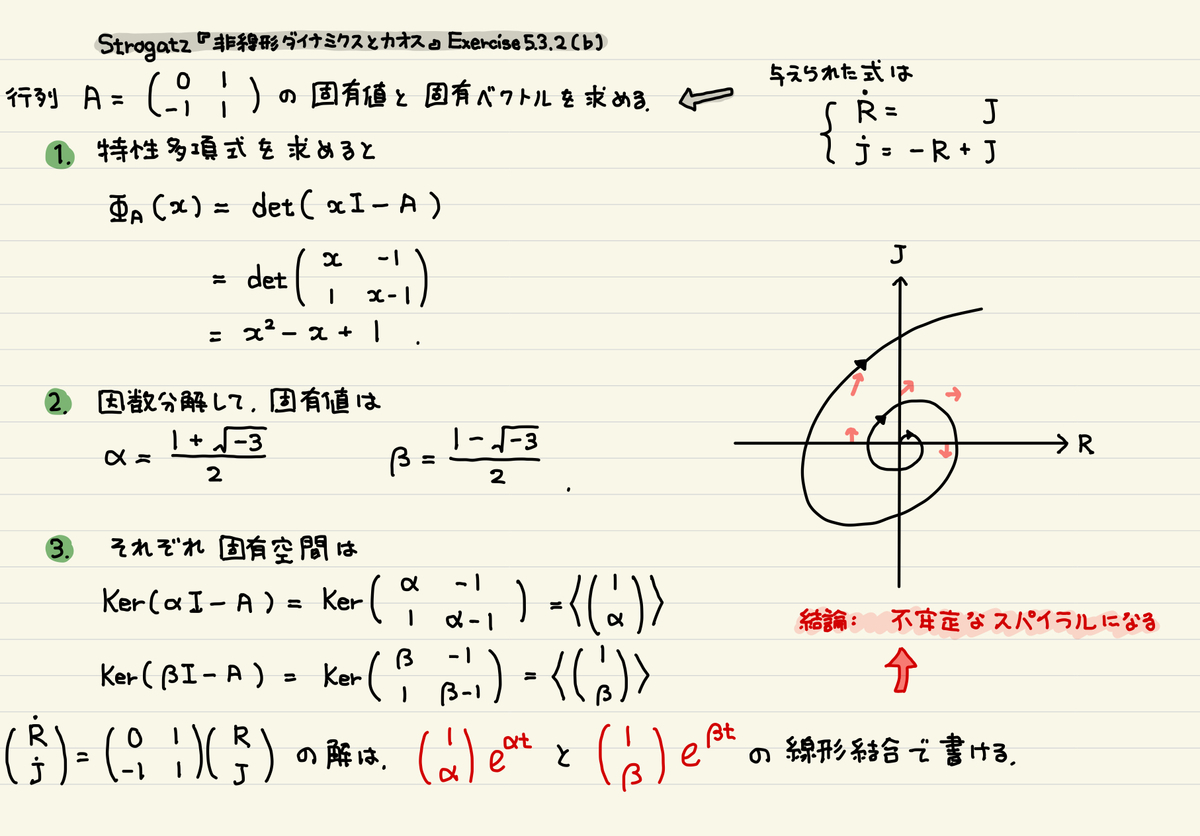 Strogatz『非線形ダイナミクスとカオス』Exercise 5.3.2(b)
行列 A = ( 0 1 ; -1 1 ) の 固有値と 固有ベクトルを 求める.
与えられた式は
{ Ṙ = J
J̇ = -R + J
1. 特性多項式を求めると
Φ_A(x) = det( xI - A )
= det( x -1 ; 1 x-1 )
= x² - x + 1 .
2. 因数分解して, 固有値は
α = (1 + √-3)/2 β = (1 - √-3)/2 .
J
R
3. それぞれ 固有空間は
Ker(αI - A) = Ker( α -1 ; 1 α-1 ) = 〈( 1 ; α )〉
Ker(βI - A) = Ker( β -1 ; 1 β-1 ) = 〈( 1 ; β )〉
結論: 不安定なスパイラルになる
( Ṙ ; J̇ ) = ( 0 1 ; -1 1 )( R ; J ) の解は, ( 1 ; α ) e^αt と ( 1 ; β ) e^βt の 線形結合で書ける.